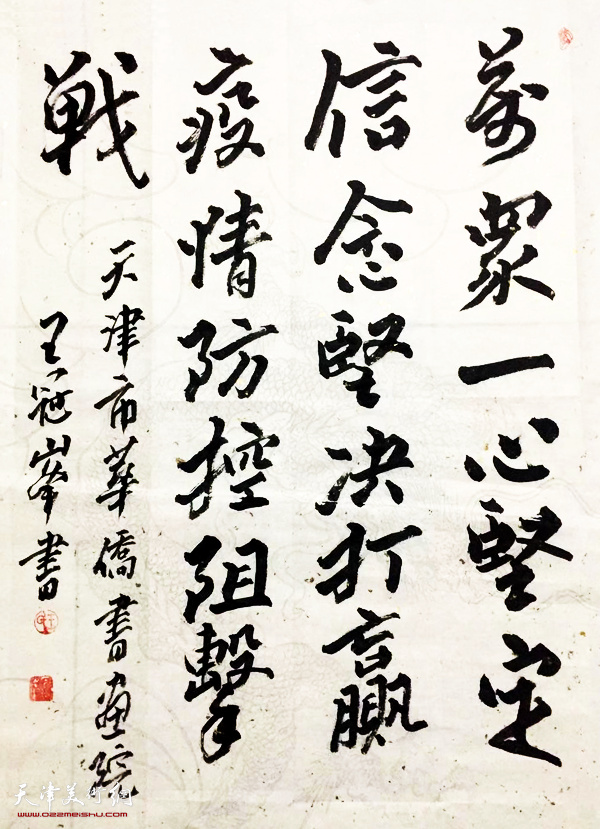 萬眾一心堅定
信念堅决打贏
疫情防控阻擊
戰
天津市華僑書畫院
王冠峰書
天津美术网
www.022meishu.com